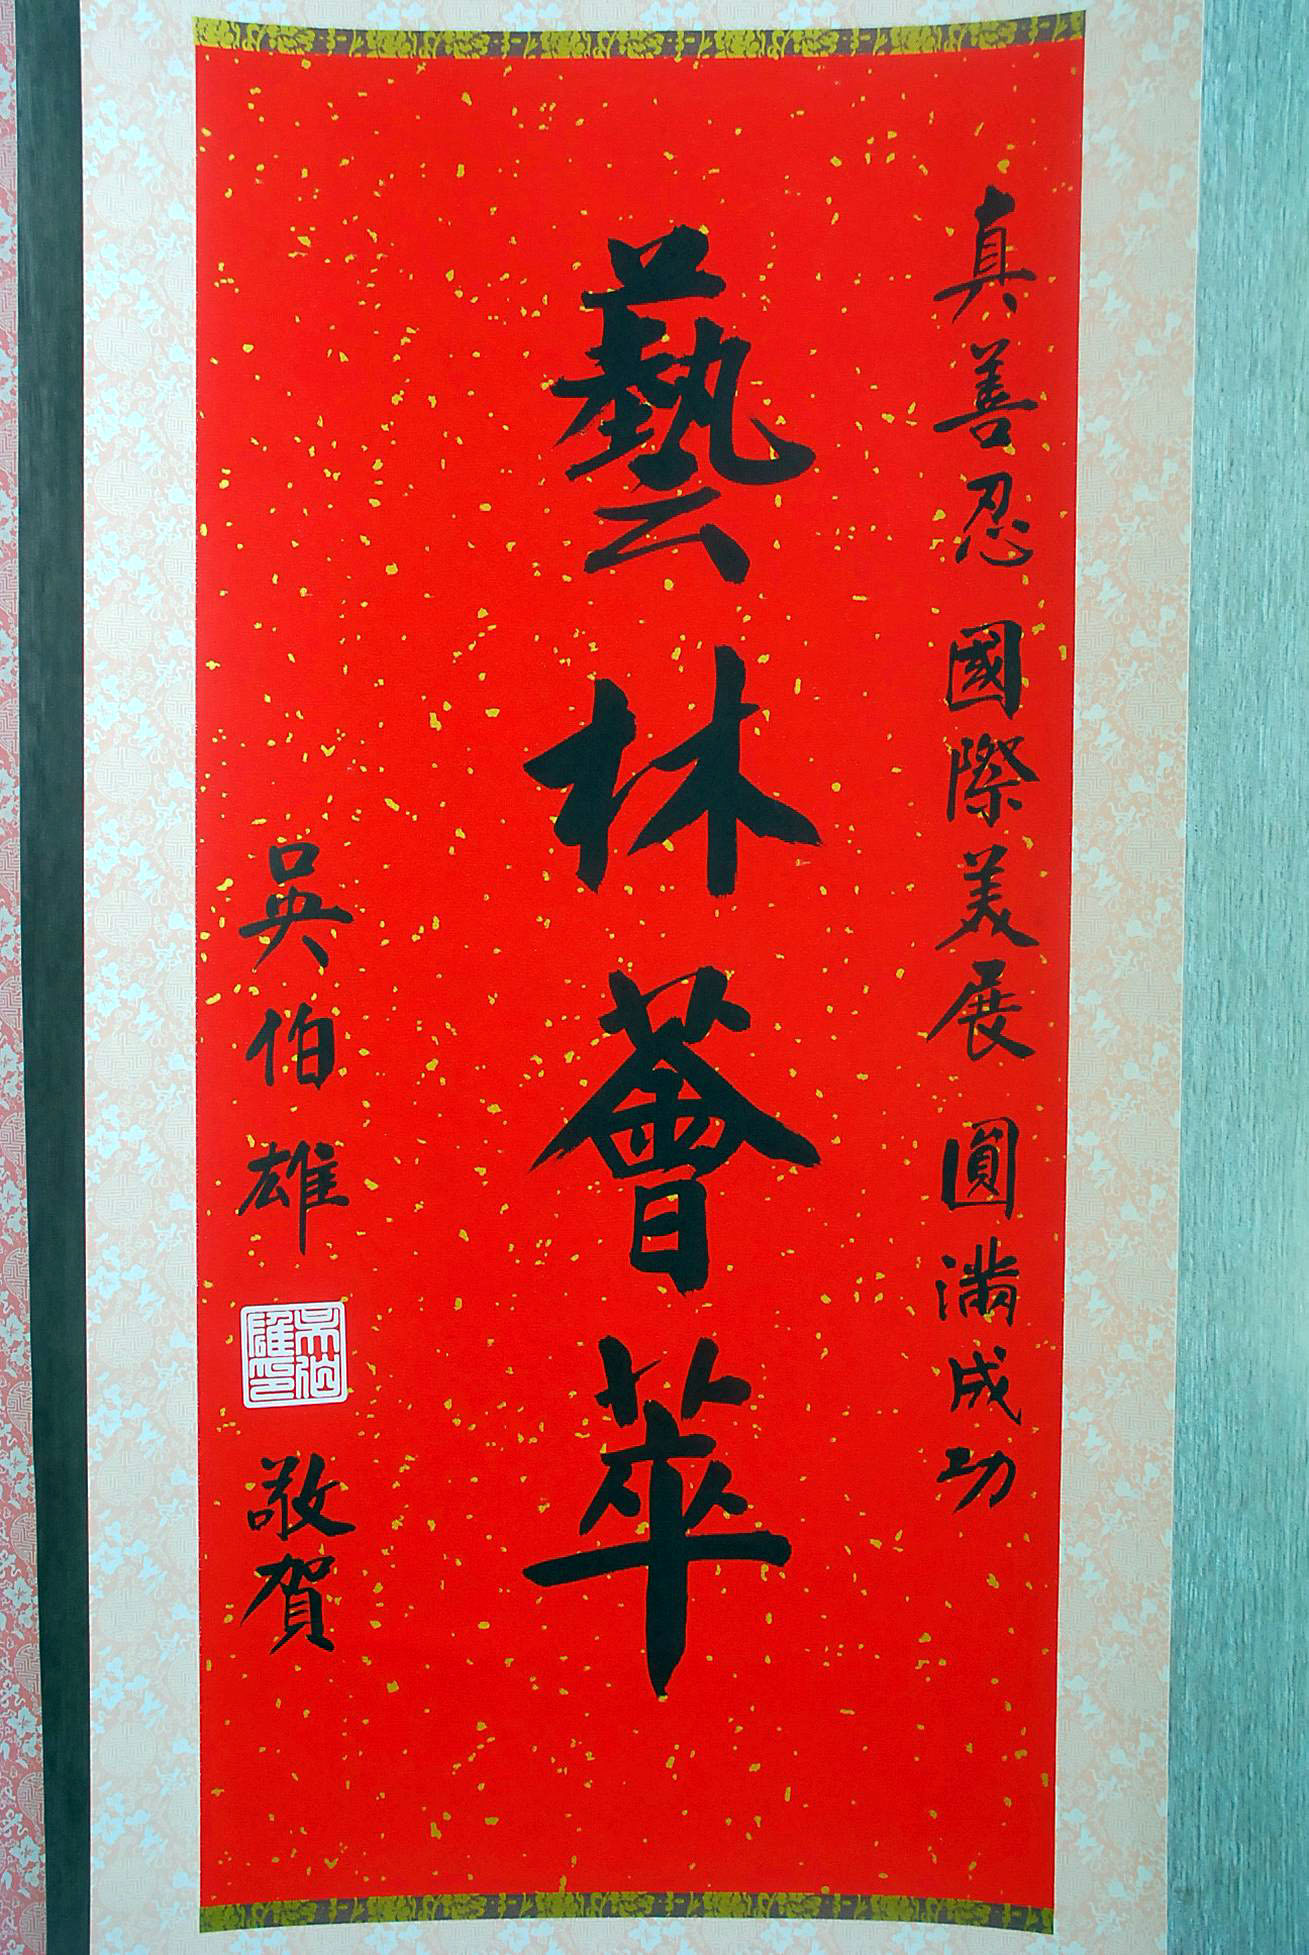 真善忍 國際美展 圓滿成功
藝林薈萃
吳伯雄
吳伯雄印
敬賀